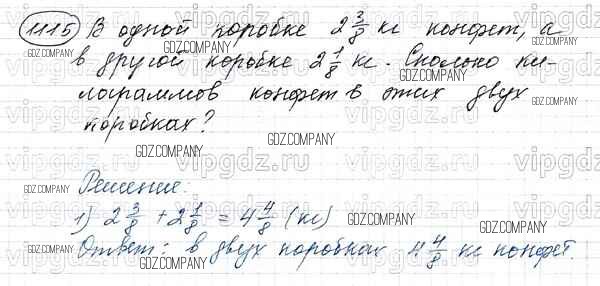 1115 В одной коробке 2 3/8 кг конфет, а
в другой коробке 2 1/8 кг. Сколько ки-
лограммов конфет в этих двух
коробках?
Решение:
1) 2 3/8 + 2 1/8 = 4 4/8 (кг)
Ответ: в двух коробках 4 4/8 кг конфет.
vipgdz.ru
GDZ.COMPANY